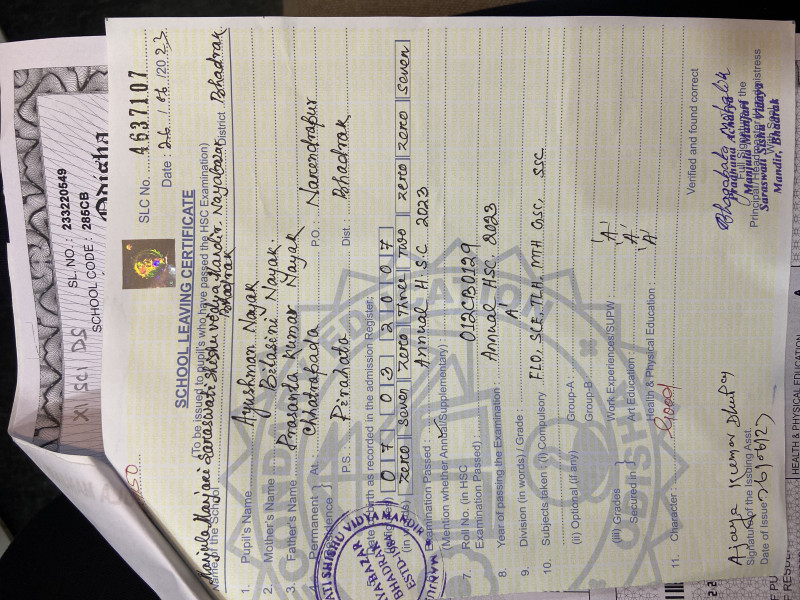 SL. NO. : 233220549
SCHOOL CODE : 285CB
XII SCI DS
SLC No. 4637107
Date : 26/06/2023
SCHOOL LEAVING CERTIFICATE
(To be issued to pupil's who have passed the HSC Examination)
Name of the School Saraswati Shishu Vidya Mandir, Nayabazar, District Bhadrak
Bhadrak
1. Pupil's Name Ayushman Nayak
2. Mother's Name Bilasini Nayak
3. Father's Name Prasanta Kumar Nayak
4. Permanent At: Chhatrabada P.O. : Narendrapur
P.S. Pirahata Dist. Bhadrak
birth as recorded in the admission Register:
0 7 0 3 2 0 0 7
zero seven zero three two zero zero seven
Examination Passed : Annual H.S.C 2023
(Mention whether Annual/Supplementary) :
7. Roll No. (in HSC
Examination Passed) : 012CB0129
8. Year of passing the Examination : Annual HSC. 2023
9. Division (in words) / Grade : 'A'
10. Subjects taken : (i) Compulsory FLO, SLE, TLH, MTH, GSC, SSC
(ii) Optional (if any) Group-A :
Group-B :
(iii) Grades Work Experiences/SUPW : 'A'
Secured in } Art Education : 'A'
Health & Physical Education : 'A'
11. Character : Good
Verified and found correct
Ajaya Kumar
Signature of the Issuing Asst.
Date of Issue 26/06/23
Full Signature of the
Principal/Headmaster/Headmistress
With Seal
Pradhana Acharya
Manjula Manjari
Saraswati Sishu Vidya
Mandir, Bhadrak
HEALTH & PHYSICAL EDUCATION